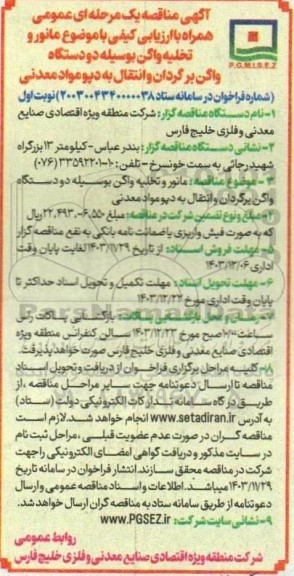 آگهی مناقصه یک مرحله ای عمومی
همراه با ارزیابی کیفی با موضوع مانور و
تخلیه واگن بوسیله دو دستگاه
واگن برگردان و انتقال به دپو مواد معدنی
P.G.M.I.S.E.Z
(شماره فراخوان در سامانه ستاد ۲۰۰۳۰۰۴۳۴۰۰۰۰۰۳۸) نوبت اول
۱- نام دستگاه مناقصه گزار: شرکت منطقه ویژه اقتصادی صنایع
معدنی و فلزی خلیج فارس
۲- نشانی دستگاه مناقصه گزار: بندرعباس- کیلومتر ۱۳ بزرگراه
شهید رجائی به سمت خونسرخ - تلفن: ۱۰-۳۳۵۹۲۲۰۱ (۰۷۶)
۳- موضوع مناقصه: مانور و تخلیه واگن بوسیله دو دستگاه
واگن برگردان و انتقال به دپو مواد معدنی
۴- مبلغ و نوع تضمین شرکت در مناقصه: مبلغ ریال
که به صورت فیش واریزی یا ضمانت نامه بانکی به نفع مناقصه گزار
۵- مهلت فروش اسناد: از تاریخ ۱۴۰۳/۱۱/۲۹ لغایت پایان وقت
اداری ۱۴۰۳/۱۲/۰۶
۶- مهلت تحویل اسناد: مهلت تکمیل و تحویل اسناد حداکثر تا
پایان وقت اداری مورخ ۱۴۰۳/۱۲/۲۲
۷- بازگشایی پاکات رأس
ساعت ۱۰:۰۰ صبح مورخ ۱۴۰۳/۱۲/۲۳ سالن کنفرانس منطقه ویژه
اقتصادی صنایع معدنی و فلزی خلیج فارس صورت خواهد پذیرفت.
۸- کلیه مراحل برگزاری فراخوان از دریافت و تحویل اسناد
مناقصه تا ارسال دعوتنامه جهت سایر مراحل مناقصه، از
طریق درگاه سامانه تدارکات الکترونیکی دولت (ستاد)
به آدرس www.setadiran.ir انجام خواهد شد. لازم است
مناقصه گران در صورت عدم عضویت قبلی، مراحل ثبت نام
در سایت مذکور و دریافت گواهی امضای الکترونیکی را جهت
شرکت در مناقصه محقق سازند. انتشار فراخوان در سامانه تاریخ
۱۴۰۳/۱۱/۲۹ میباشد. اطلاعات و اسناد مناقصه عمومی و ارسال
دعوتنامه از طریق سامانه ستاد به مناقصه گران ارسال خواهد شد.
۹- نشانی سایت شرکت: www.PGSEZ.ir
روابط عمومی
شرکت منطقه ویژه اقتصادی صنایع معدنی و فلزی خلیج فارس